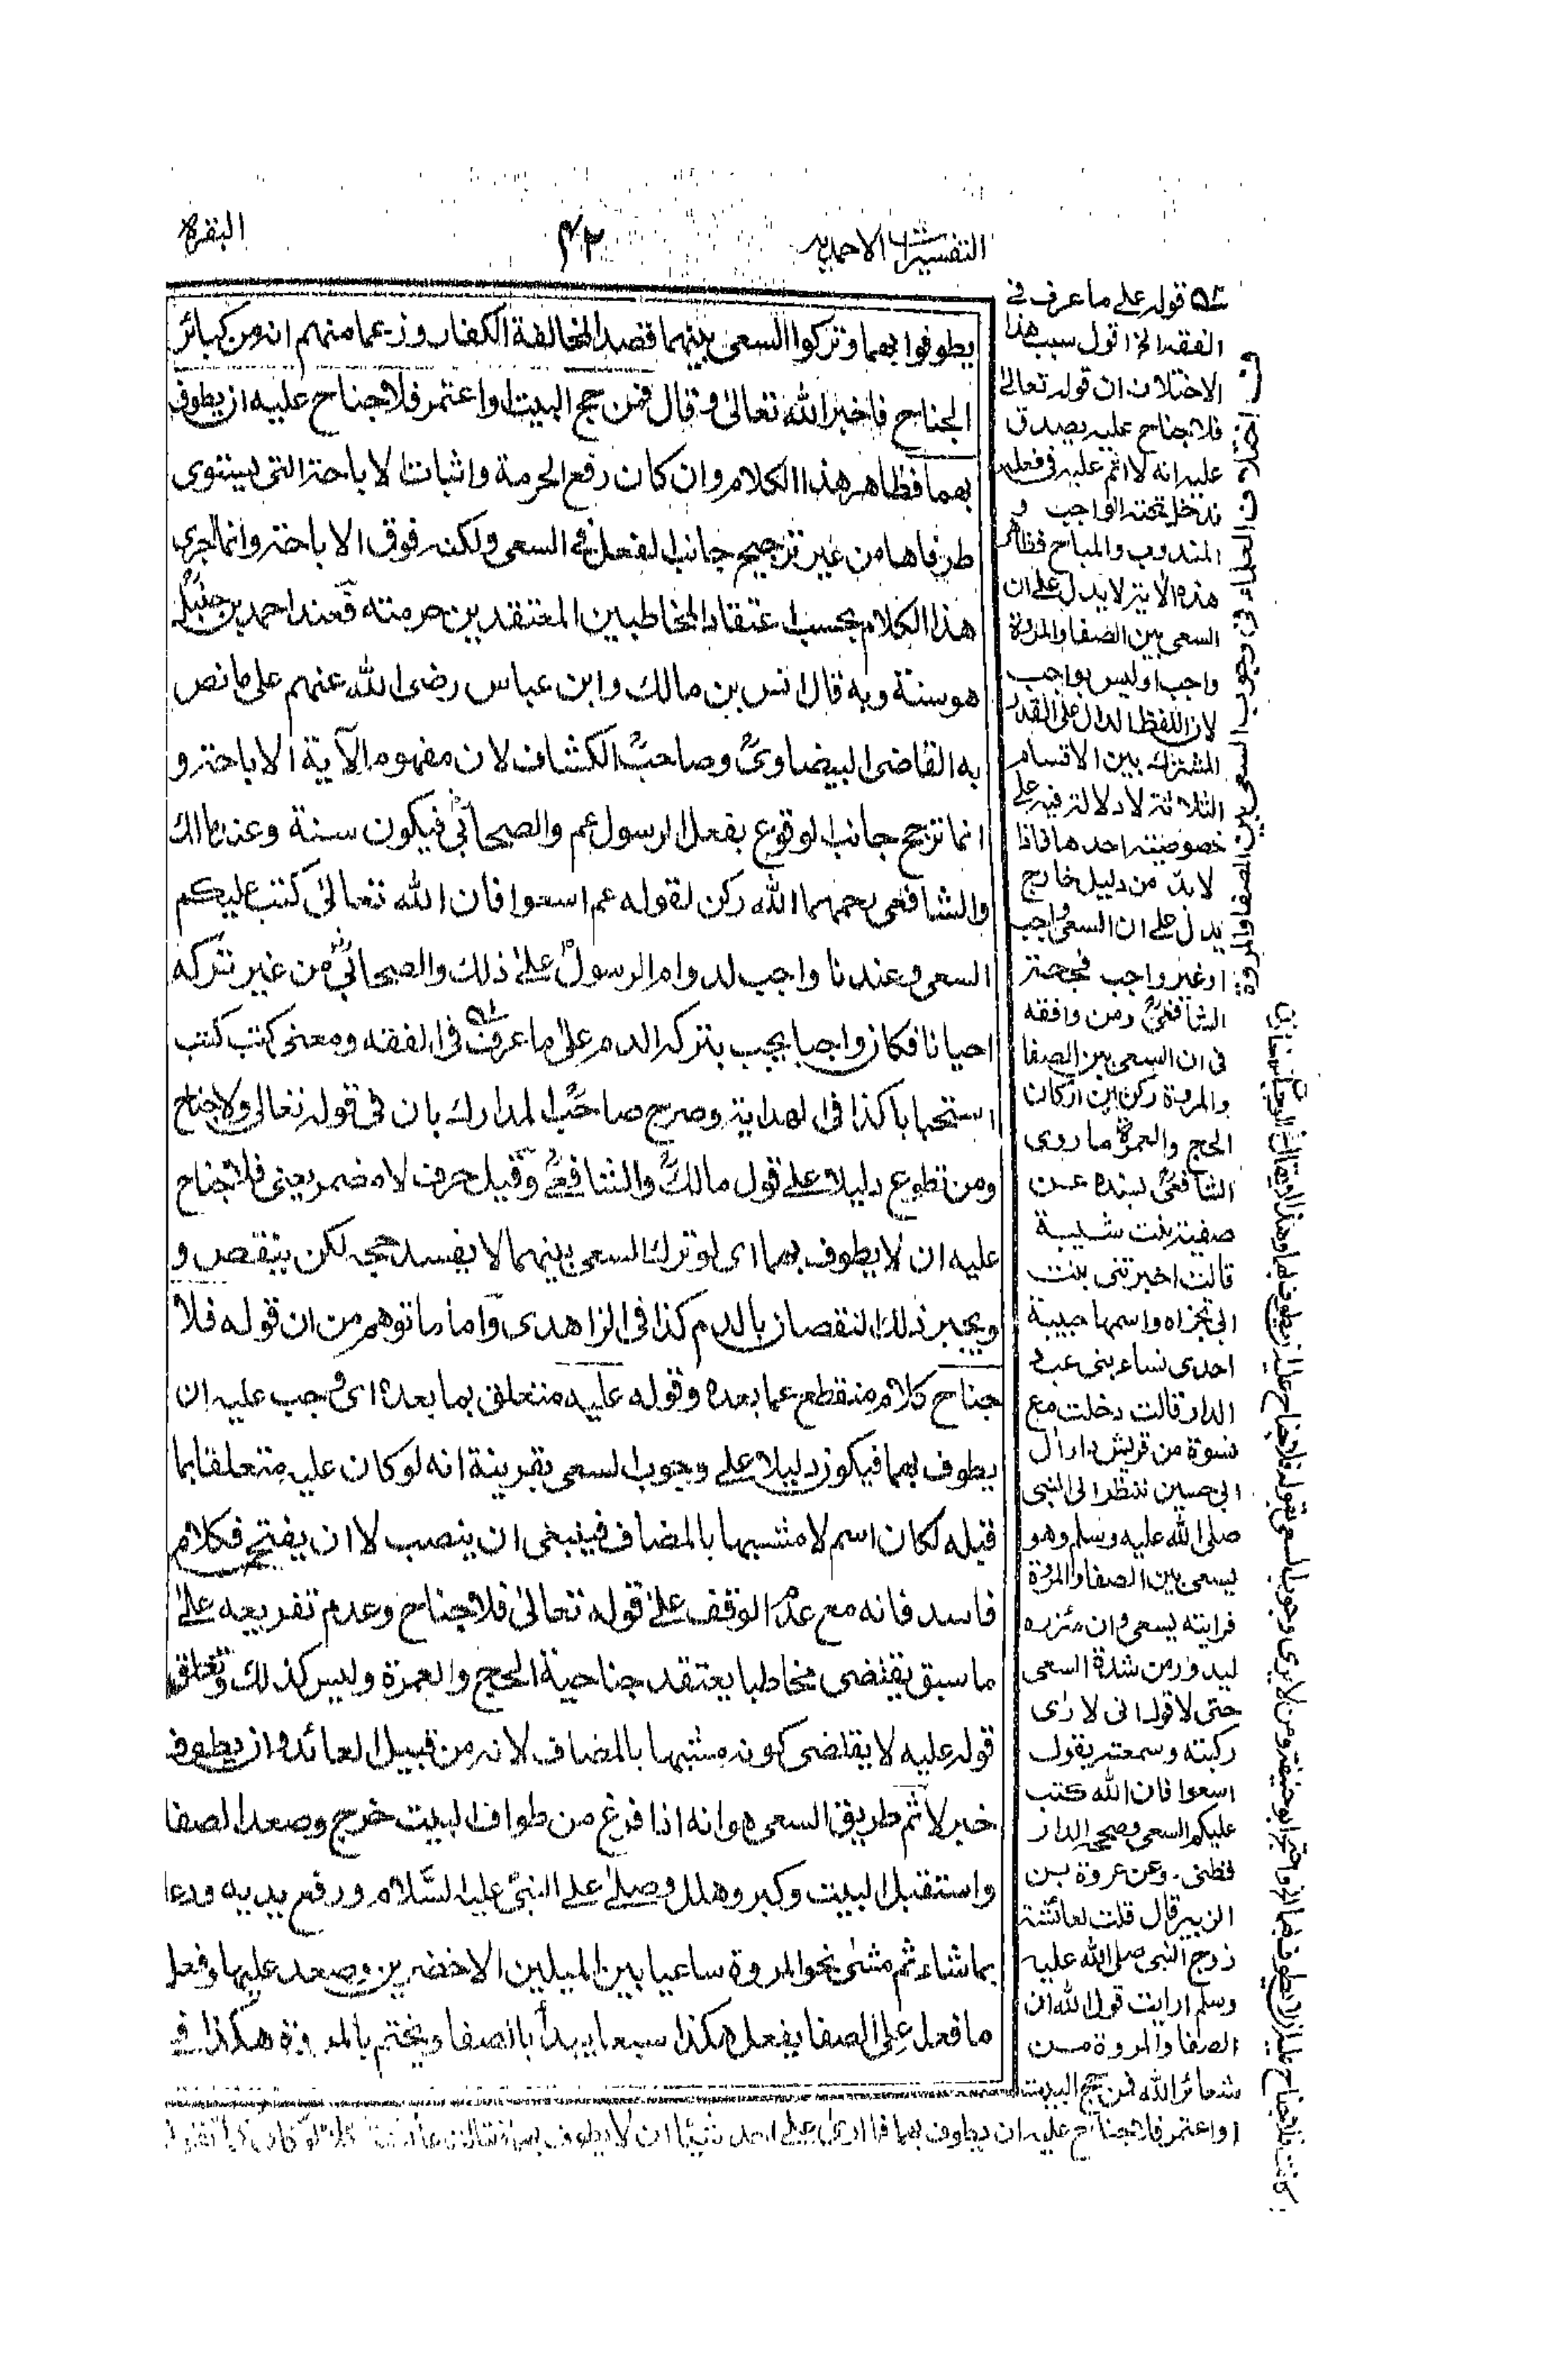 التفسيرات الاحمدية
٤٢
البقرة
يطوفوا بهما وتركوا السعى بينهما قصدا لمخالفة الكفار وزعما منهم انه من كبائر
الجناح فاخبر الله تعالى وقال فمن حج البيت او اعتمر فلا جناح عليه ان يطوف
بهما فظاهر هذا الكلام وان كان رفع الحرمة واثبات الاباحة التى يستوى
طرفاها من غير ترجيح جانب الفعل فى السعى ولكنه فوق الاباحة وانما اجرى
هذا الكلام بحسب اعتقاد المخاطبين المعتقدين حرمته فعند احمد بن حنبل
هو سنة وبه قال انس بن مالك وابن عباس رضى الله عنهم على ما نص
به القاضى البيضاوى وصاحب الكشاف لان مفهوم الآية الاباحة و
انما ترجح جانب الوقوع بفعل الرسول عم والصحابى فيكون سنة وعند مالك
والشافعى رحمهما الله ركن لقوله عم اسعوا فان الله تعالى كتب عليكم
السعى وعندنا واجب لدوام الرسول على ذلك والصحابى من غير تركه
احيانا فكان واجبا يجب بتركه الدم على ما عرف فى الفقه ومعنى كتب كتب
استحبابا كذا فى الهداية وصرح صاحب المدارك بان فى قوله تعالى ولا جناح
ومن تطوع دليلا على قول مالك والشافعى وقيل حرف لا مضمر يعنى فلا جناح
عليه ان لا يطوف بهما اى لو ترك السعى بينهما لا يفسد حجه لكن ينقص و
ويجبر ذلك النقصان بالدم كذا فى الزاهدى واما ما توهم من ان قوله فلا
جناح كلام منقطع عما بعده وقوله عليه متعلق بما بعده اى وجب عليه ان
يطوف بهما فيكون دليلا على وجوب السعى بقرينة انه لو كان عليه متعلقا بما
قبله لكان اسم لا مشبها بالمضاف فينبغى ان ينصب لا ان يفتح فكلام
فاسد فانه مع عدم الوقف على قوله تعالى فلا جناح وعدم تفريعه على
ما سبق يقتضى مخاطبا يعتقد جناحية الحج والعمرة وليس كذلك وتعلق
قوله عليه لا يقتضى كونه مشبها بالمضاف لانه من قبيل العائد وان يطوف
خبر لا ثم طريق السعى هو انه اذا فرغ من طواف البيت خرج وصعد الصفا
واستقبل البيت وكبر وهلل وصلى على النبى عليه السلام ورفع يديه ودعا
بما شاء ثم مشى نحو المروة ساعيا بين الميلين الاخضرين وصعد عليها وفعل
ما فعل على الصفا يفعل هكذا سبعا يبدأ بالصفا ويختم بالمروة هكذا فى
قوله على ما عرف فى
الفقه الخ اقول سبب هذا
الاختلاف ان قوله تعالى
فلا جناح عليه يصدق
عليه انه لا اثم عليه فى فعله
فدخل تحته الواجب و
المندوب والمباح فظاهر
هذه الآية لا يدل على ان
السعى بين الصفا والمروة
واجب او ليس بواجب
لان اللفظ الدال على القدر
المشترك بين الاقسام
الثلاثة لا دلالة فيه على
خصوصية احدها فاذا
لا بد من دليل خارج
يدل على ان السعى واجب
او غير واجب فحجة
الشافعى ومن وافقه
فى ان السعى بين الصفا
والمروة ركن من اركان
الحج والعمرة ما روى
الشافعى بسنده عن
صفية بنت شيبة
قالت اخبرتنى بنت
ابى تجزاه واسمها حبيبة
احدى نساء بنى عبد
الدار قالت دخلت مع
نسوة من قريش دار آل
ابى حسين ننظر الى النبى
صلى الله عليه وسلم وهو
يسعى بين الصفا والمروة
فرايته يسعى وان مئزره
ليدور من شدة السعى
حتى لاقول انى لارى
ركبته وسمعته يقول
اسعوا فان الله كتب
عليكم السعى وصححه الدار
قطنى ۔ وعن عروة بن
الزبير قال قلت لعائشة
زوج النبى صلى الله عليه
وسلم ارايت قول الله ان
الصفا والمروة من
شعائر الله فمن حج البيت
او اعتمر فلا جناح عليه ان يطوف بهما فما ارى على احد شيئا ان لا يطوف بهما فقالت عائشة كلا لو كان كما تقول
ف اختلاف العلماء فى وجوب السعى بين الصفا والمروة